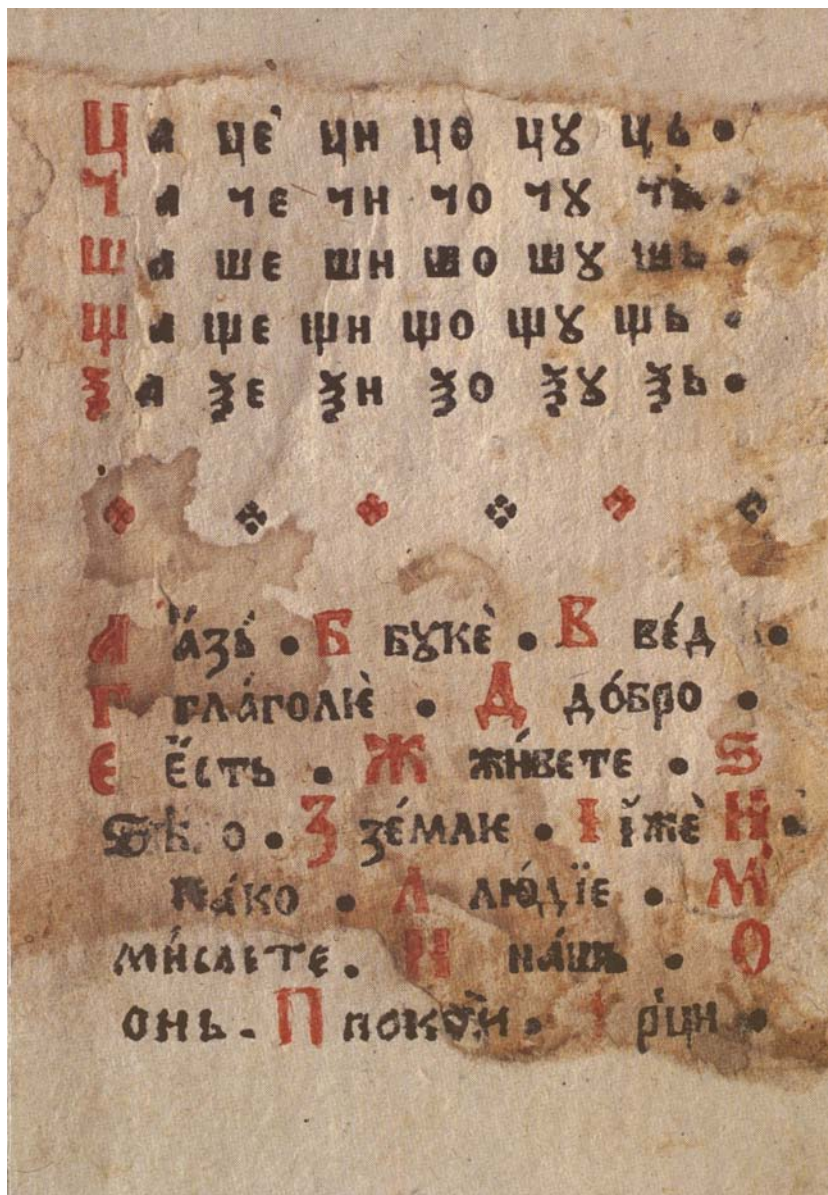 Ца це҆ ци цо цꙋ ць •
Ча че чи чо чꙋ •
Ша ше ши шо шꙋ шь •
Ща ще щи що щꙋ щь •
Ѯа ѯе ѯи ѯо ѯꙋ ѯь •
А а҆́зь • Б бꙋкѐ • В ве́д •
Г глаголѥ̀ • Д до́бро •
Е є҆́сть • Ж жи́вете • Ѕ
З зе́млѥ • І і҆жѐ И
ꙗ́ко • Л лю́дїе • М
ми́слѥте. Н на́шь • О
онь. П поко́и • рци •